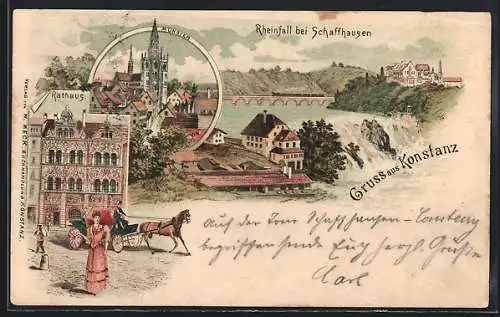 MÜNSTER
Rheinfall bei Schaffhausen
Rathaus
VERLAG von W. MECK, BUCHHANDLUNG KONSTANZ.
Gruss aus Konstanz
Auf der Tour Schaffhausen-Constanz
Euch herzl. Grüße
Carl